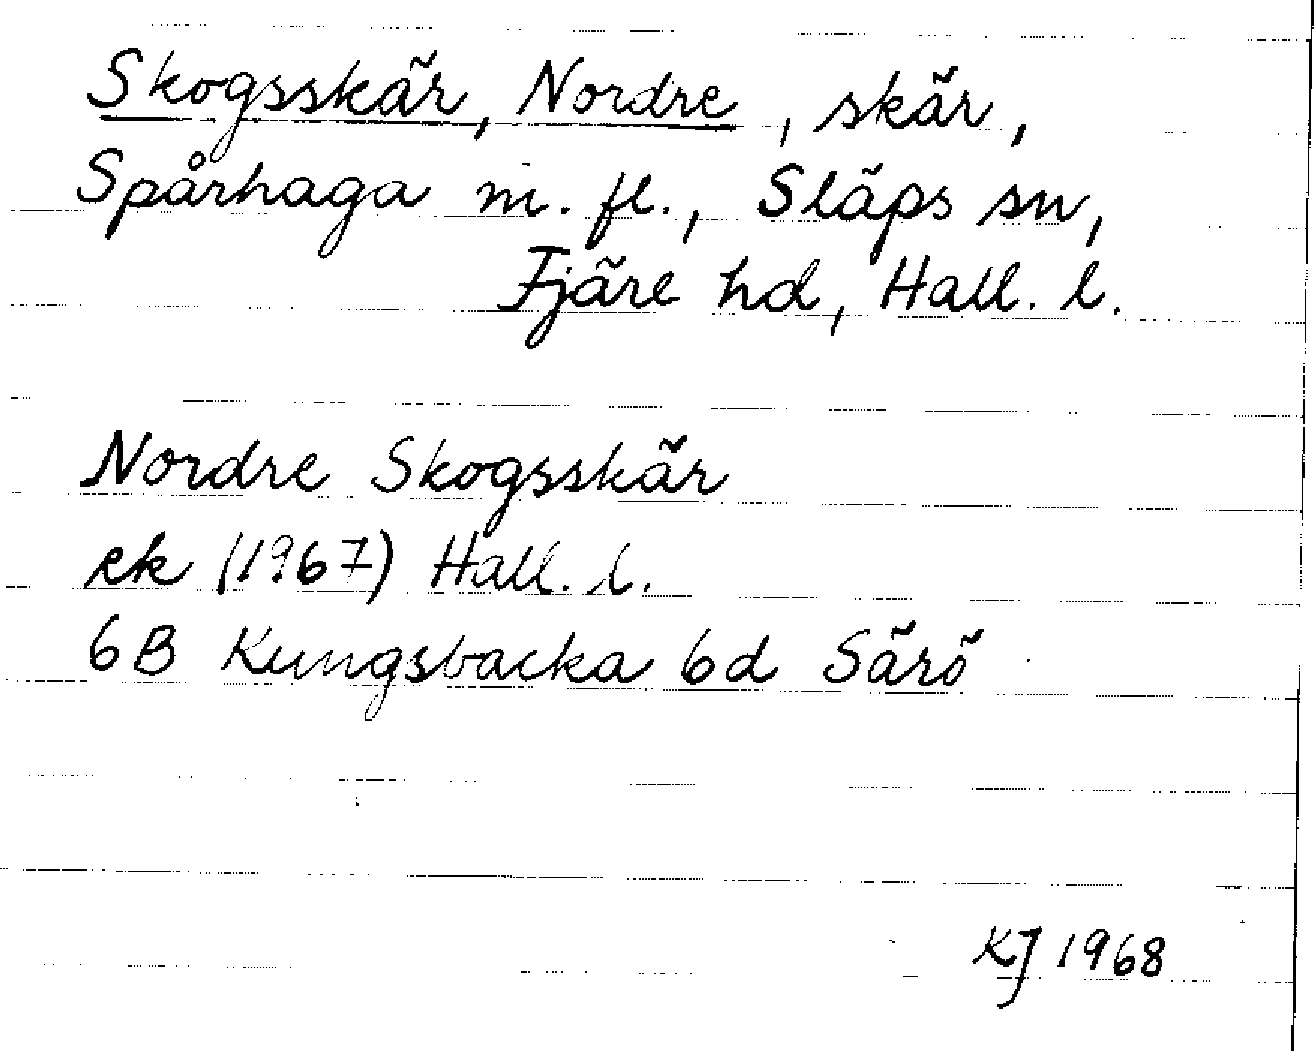 Skogsskär, Nordre, skär,
Spårhaga m. fl., Släps sn,
Fjäre hd, Hall. l.
Nordre Skogsskär
ek (1967) Hall. l.
6B Kungsbacka 6d Särö
KJ 1968